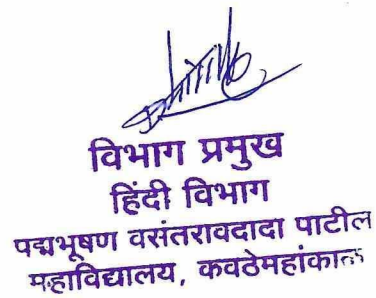 विभाग प्रमुख
हिंदी विभाग
पद्मभूषण वसंतरावदादा पाटील
महाविद्यालय, कवठेमहांकाळ